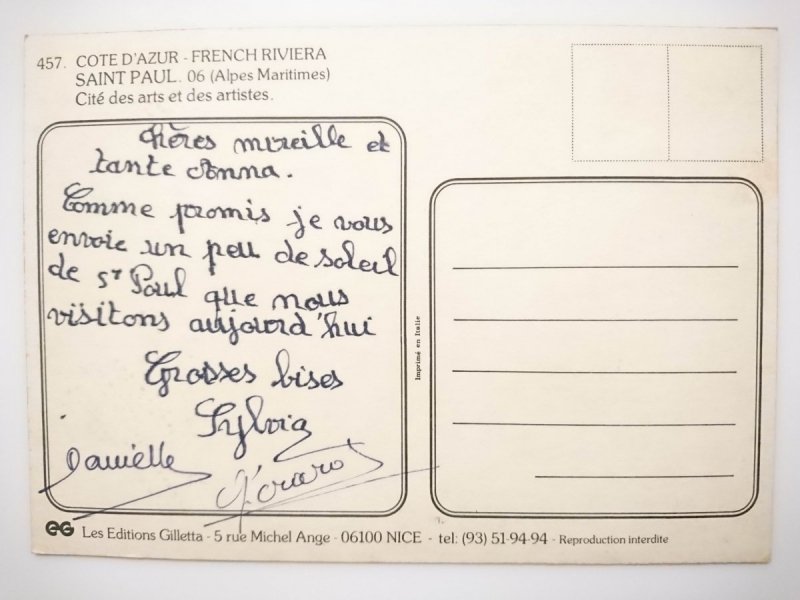 457. COTE D'AZUR - FRENCH RIVIERA
SAINT PAUL. 06 (Alpes Maritimes)
Cité des arts et des artistes.
Chères mireille et
tante Anna.
Comme promis je vous
envoie un peu de soleil
de St Paul que nous
visitons aujourd'hui
Grosses bises
Sylvia
Danielle
Imprimé en Italie
EG Les Editions Gilletta - 5 rue Michel Ange - 06100 NICE - tel: (93) 51-94-94 - Reproduction interdite